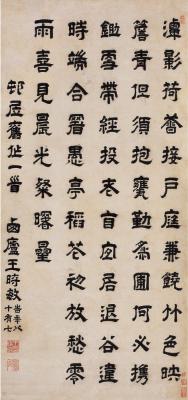 潭影荷薌接戶庭兼饒竹色映
簷青但須抱甕勤為圃何必携
鋤雪帶經投老自宜居退谷違
時端合署愚亭稻花初放愁零
雨喜見晨光粲曙曐
邨居舊作一首
西廬王時敏
時年八
十有七